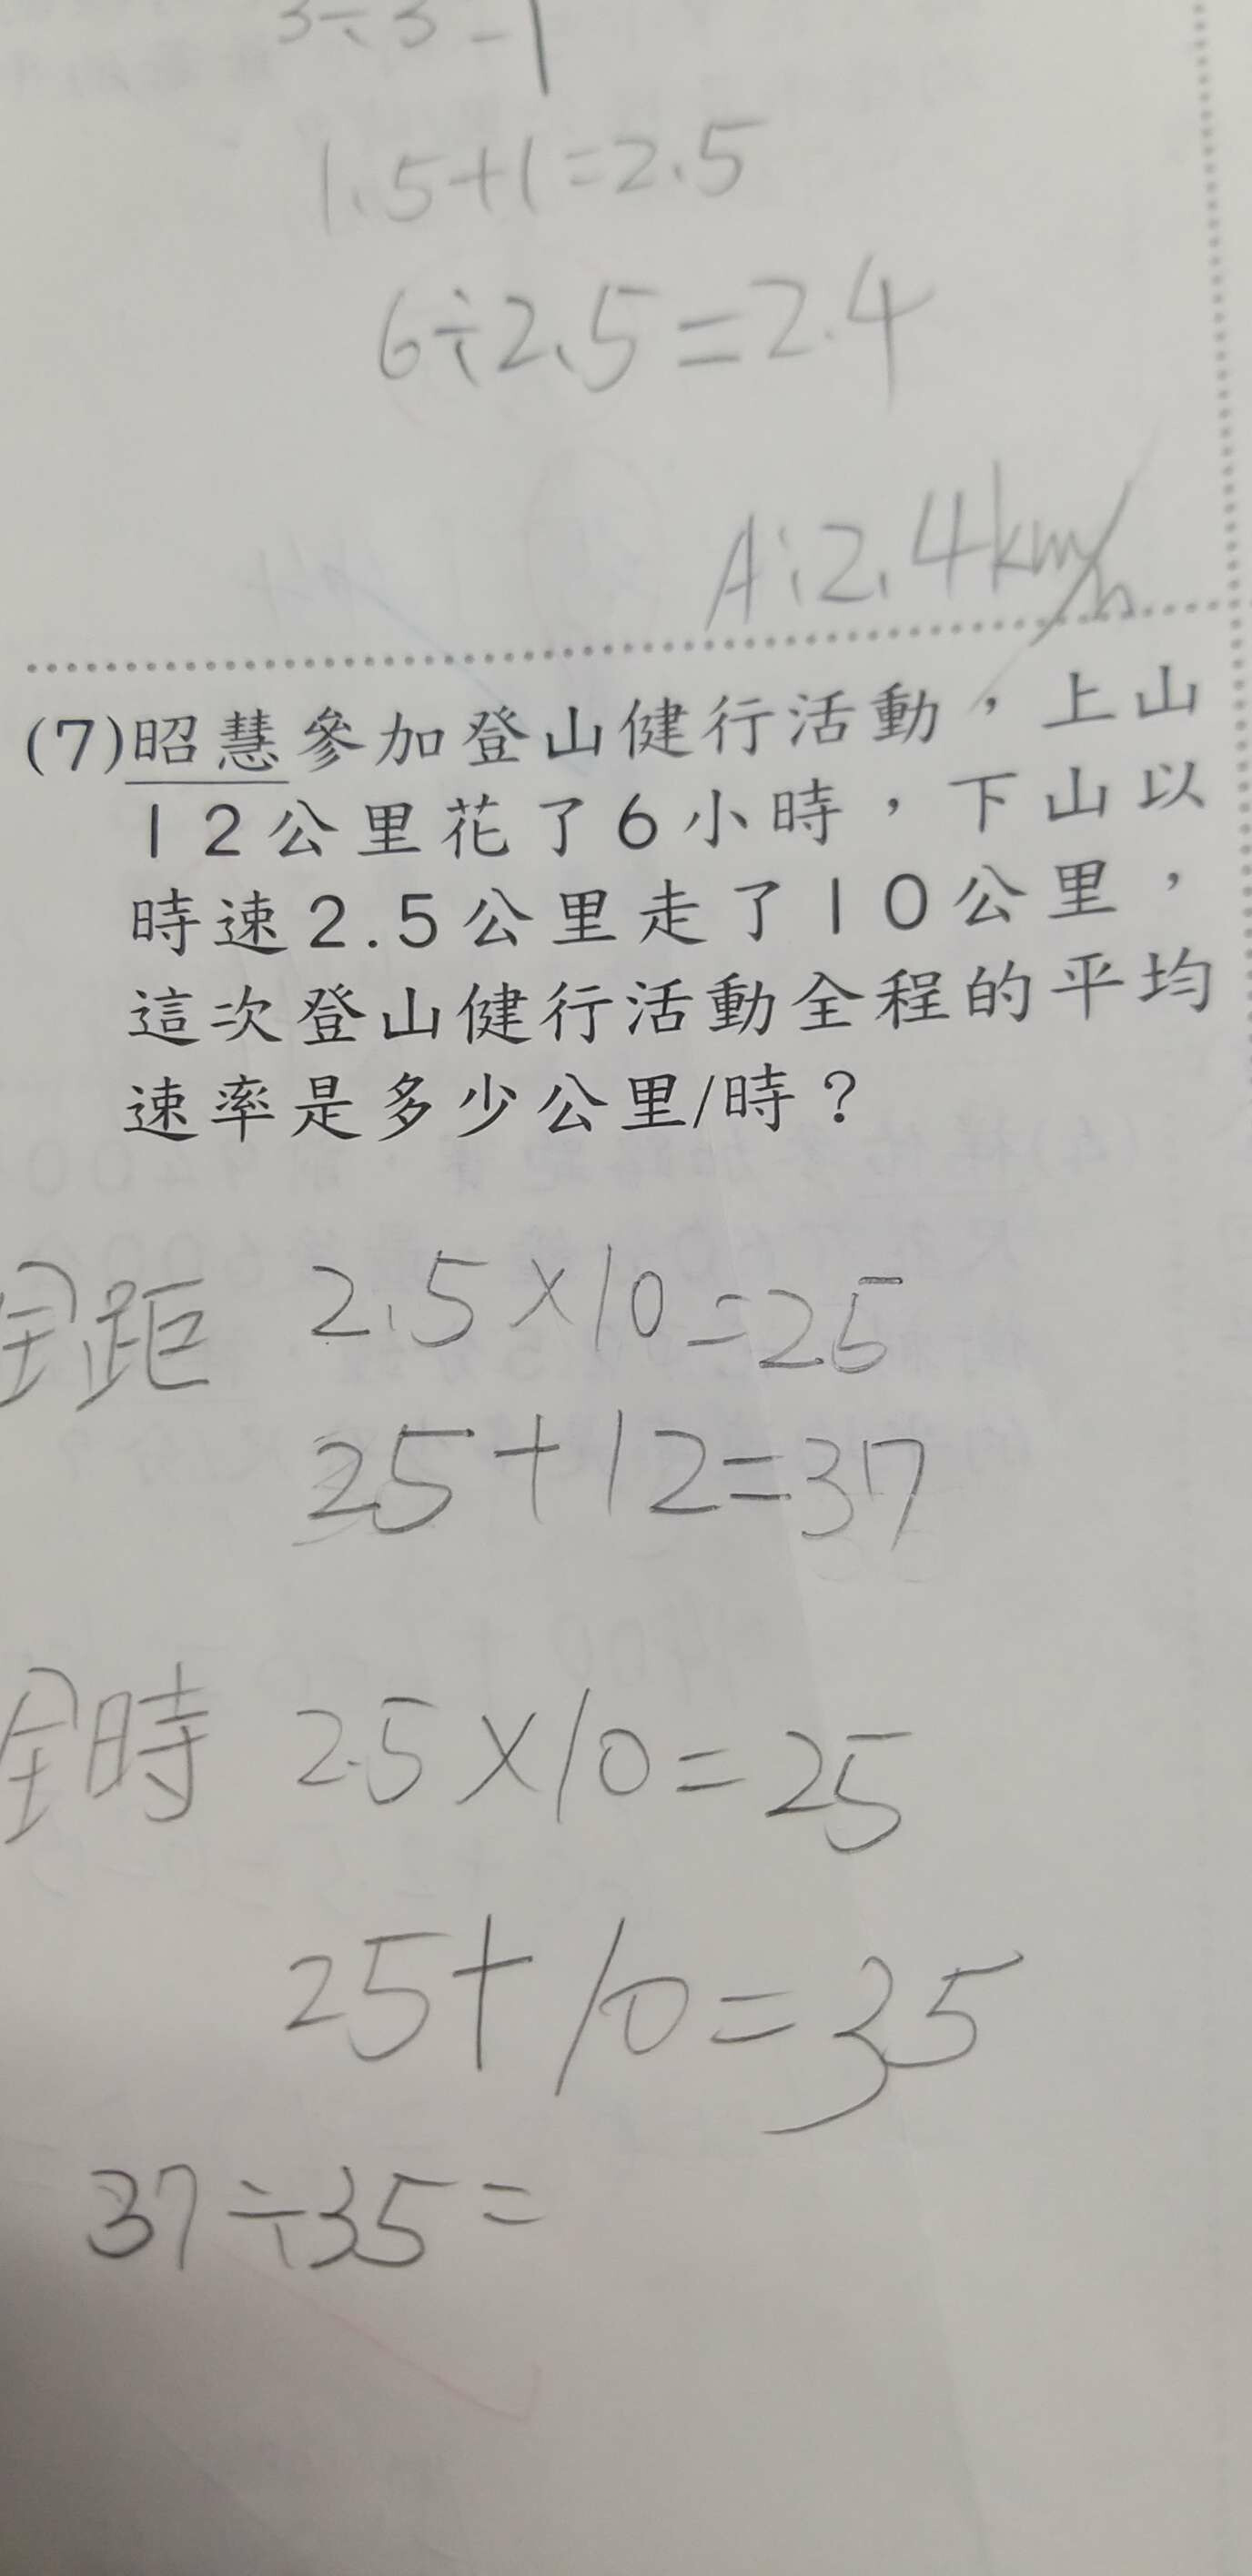 3÷3=1
1.5+1=2.5
6÷2.5=2.4
A:2.4km/h
(7)昭慧參加登山健行活動，上山
12公里花了6小時，下山以
時速2.5公里走了10公里，
這次登山健行活動全程的平均
速率是多少公里/時？
全距 2.5×10=25
25+12=37
全時 2.5×10=25
25+10=35
37÷35=